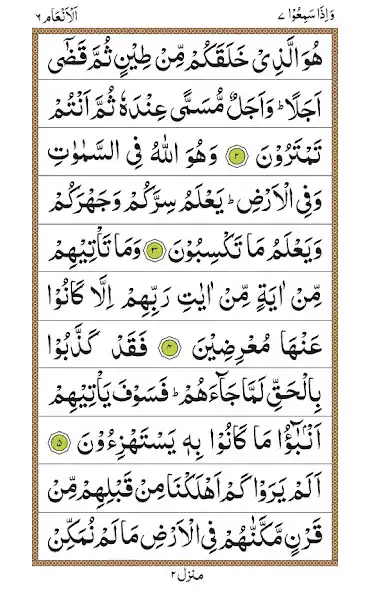 وَاِذَا سَمِعُوْا ٧
اَلْاَنْعَام ٦
هُوَ الَّذِىْ خَلَقَكُمْ مِّنْ طِيْنٍ ثُمَّ قَضٰٓى
اَجَلًا ؕ وَاَجَلٌ مُّسَمًّى عِنْدَهٗ ثُمَّ اَنْتُمْ
تَمْتَرُوْنَ ٢ وَهُوَ اللّٰهُ فِى السَّمٰوٰتِ
وَفِى الْاَرْضِ ؕ يَعْلَمُ سِرَّكُمْ وَجَهْرَكُمْ
وَيَعْلَمُ مَا تَكْسِبُوْنَ ٣ وَمَا تَاْتِيْهِمْ
مِّنْ اٰيَةٍ مِّنْ اٰيٰتِ رَبِّهِمْ اِلَّا كَانُوْا
عَنْهَا مُعْرِضِيْنَ ٤ فَقَدْ كَذَّبُوْا
بِالْحَقِّ لَمَّا جَآءَهُمْ ؕ فَسَوْفَ يَاْتِيْهِمْ
اَنْۢبٰٓؤُا مَا كَانُوْا بِهٖ يَسْتَهْزِءُوْنَ ٥
اَلَمْ يَرَوْا كَمْ اَهْلَكْنَا مِنْ قَبْلِهِمْ مِّنْ
قَرْنٍ مَّكَّنّٰهُمْ فِى الْاَرْضِ مَا لَمْ نُمَكِّنْ
منزل ٢